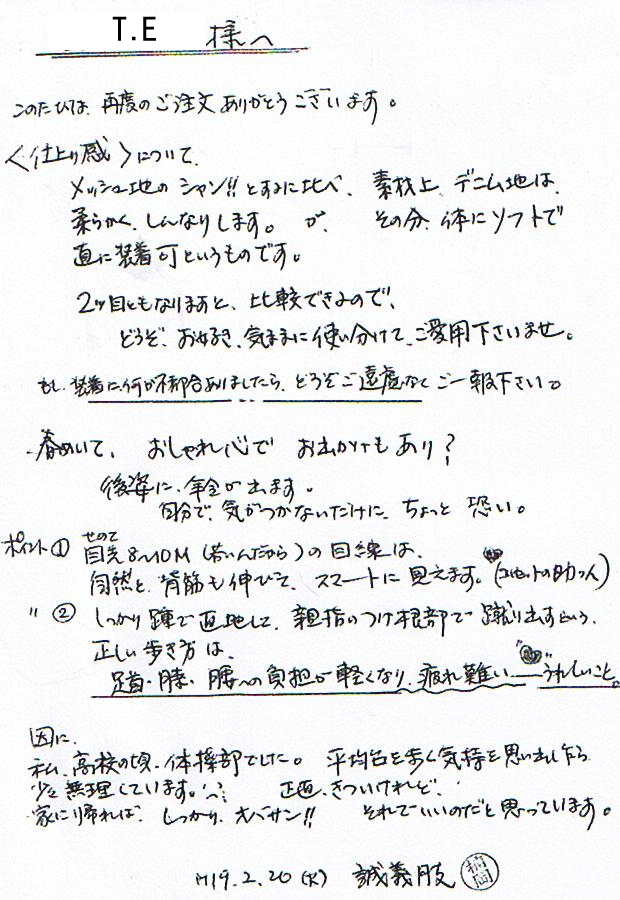 T.E 様へ
このたびは、再度のご注文ありがとうございます。
〈仕上り感〉について、
メッシュ地の シャン!! とするに比べ、 素材上、デニム地は、
柔らかく、しんなりします。 が、 その分、体にソフトで
直に装着可というものです。
2ツ目ともなりますと、比較できるので、
どうぞ、お好き、気ままに使い分けて、ご愛用下さいませ。
もし、装着に、何か不都合ありましたら、どうぞご遠慮なく ご一報下さい。
春めいて、 おしゃれ心で お出かけもあり?
後姿に、年令が出ます。
自分で、気がつかないだけに、ちょっと 恐い。
ポイント① 目先8〜10M (若いんだから) の目線は、
自然と、背筋も伸びて、スマートに見えます。 (コルセットの助っ人)
〃 ② しっかり踵で直地して、親指のつけ根部で 蹴り出すという、
正しい歩き方は、
足首・膝・腰への負担が軽くなり、疲れ難い──うれしいこと。
因に、
私、高校の頃、体操部でした。 平均台を歩く気持を思い出し乍ら
少々無理しています。 正直、きついけれど、
家に帰れば、しっかり、オバサン!! それでいいのだと思っています。
H19.2.20(火) 誠義肢